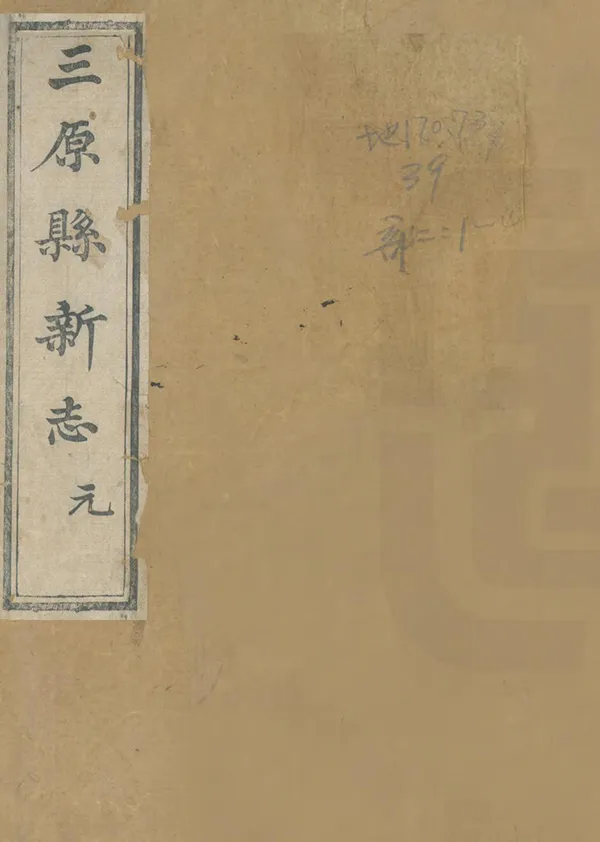 三原縣新志 元
地170.73
39